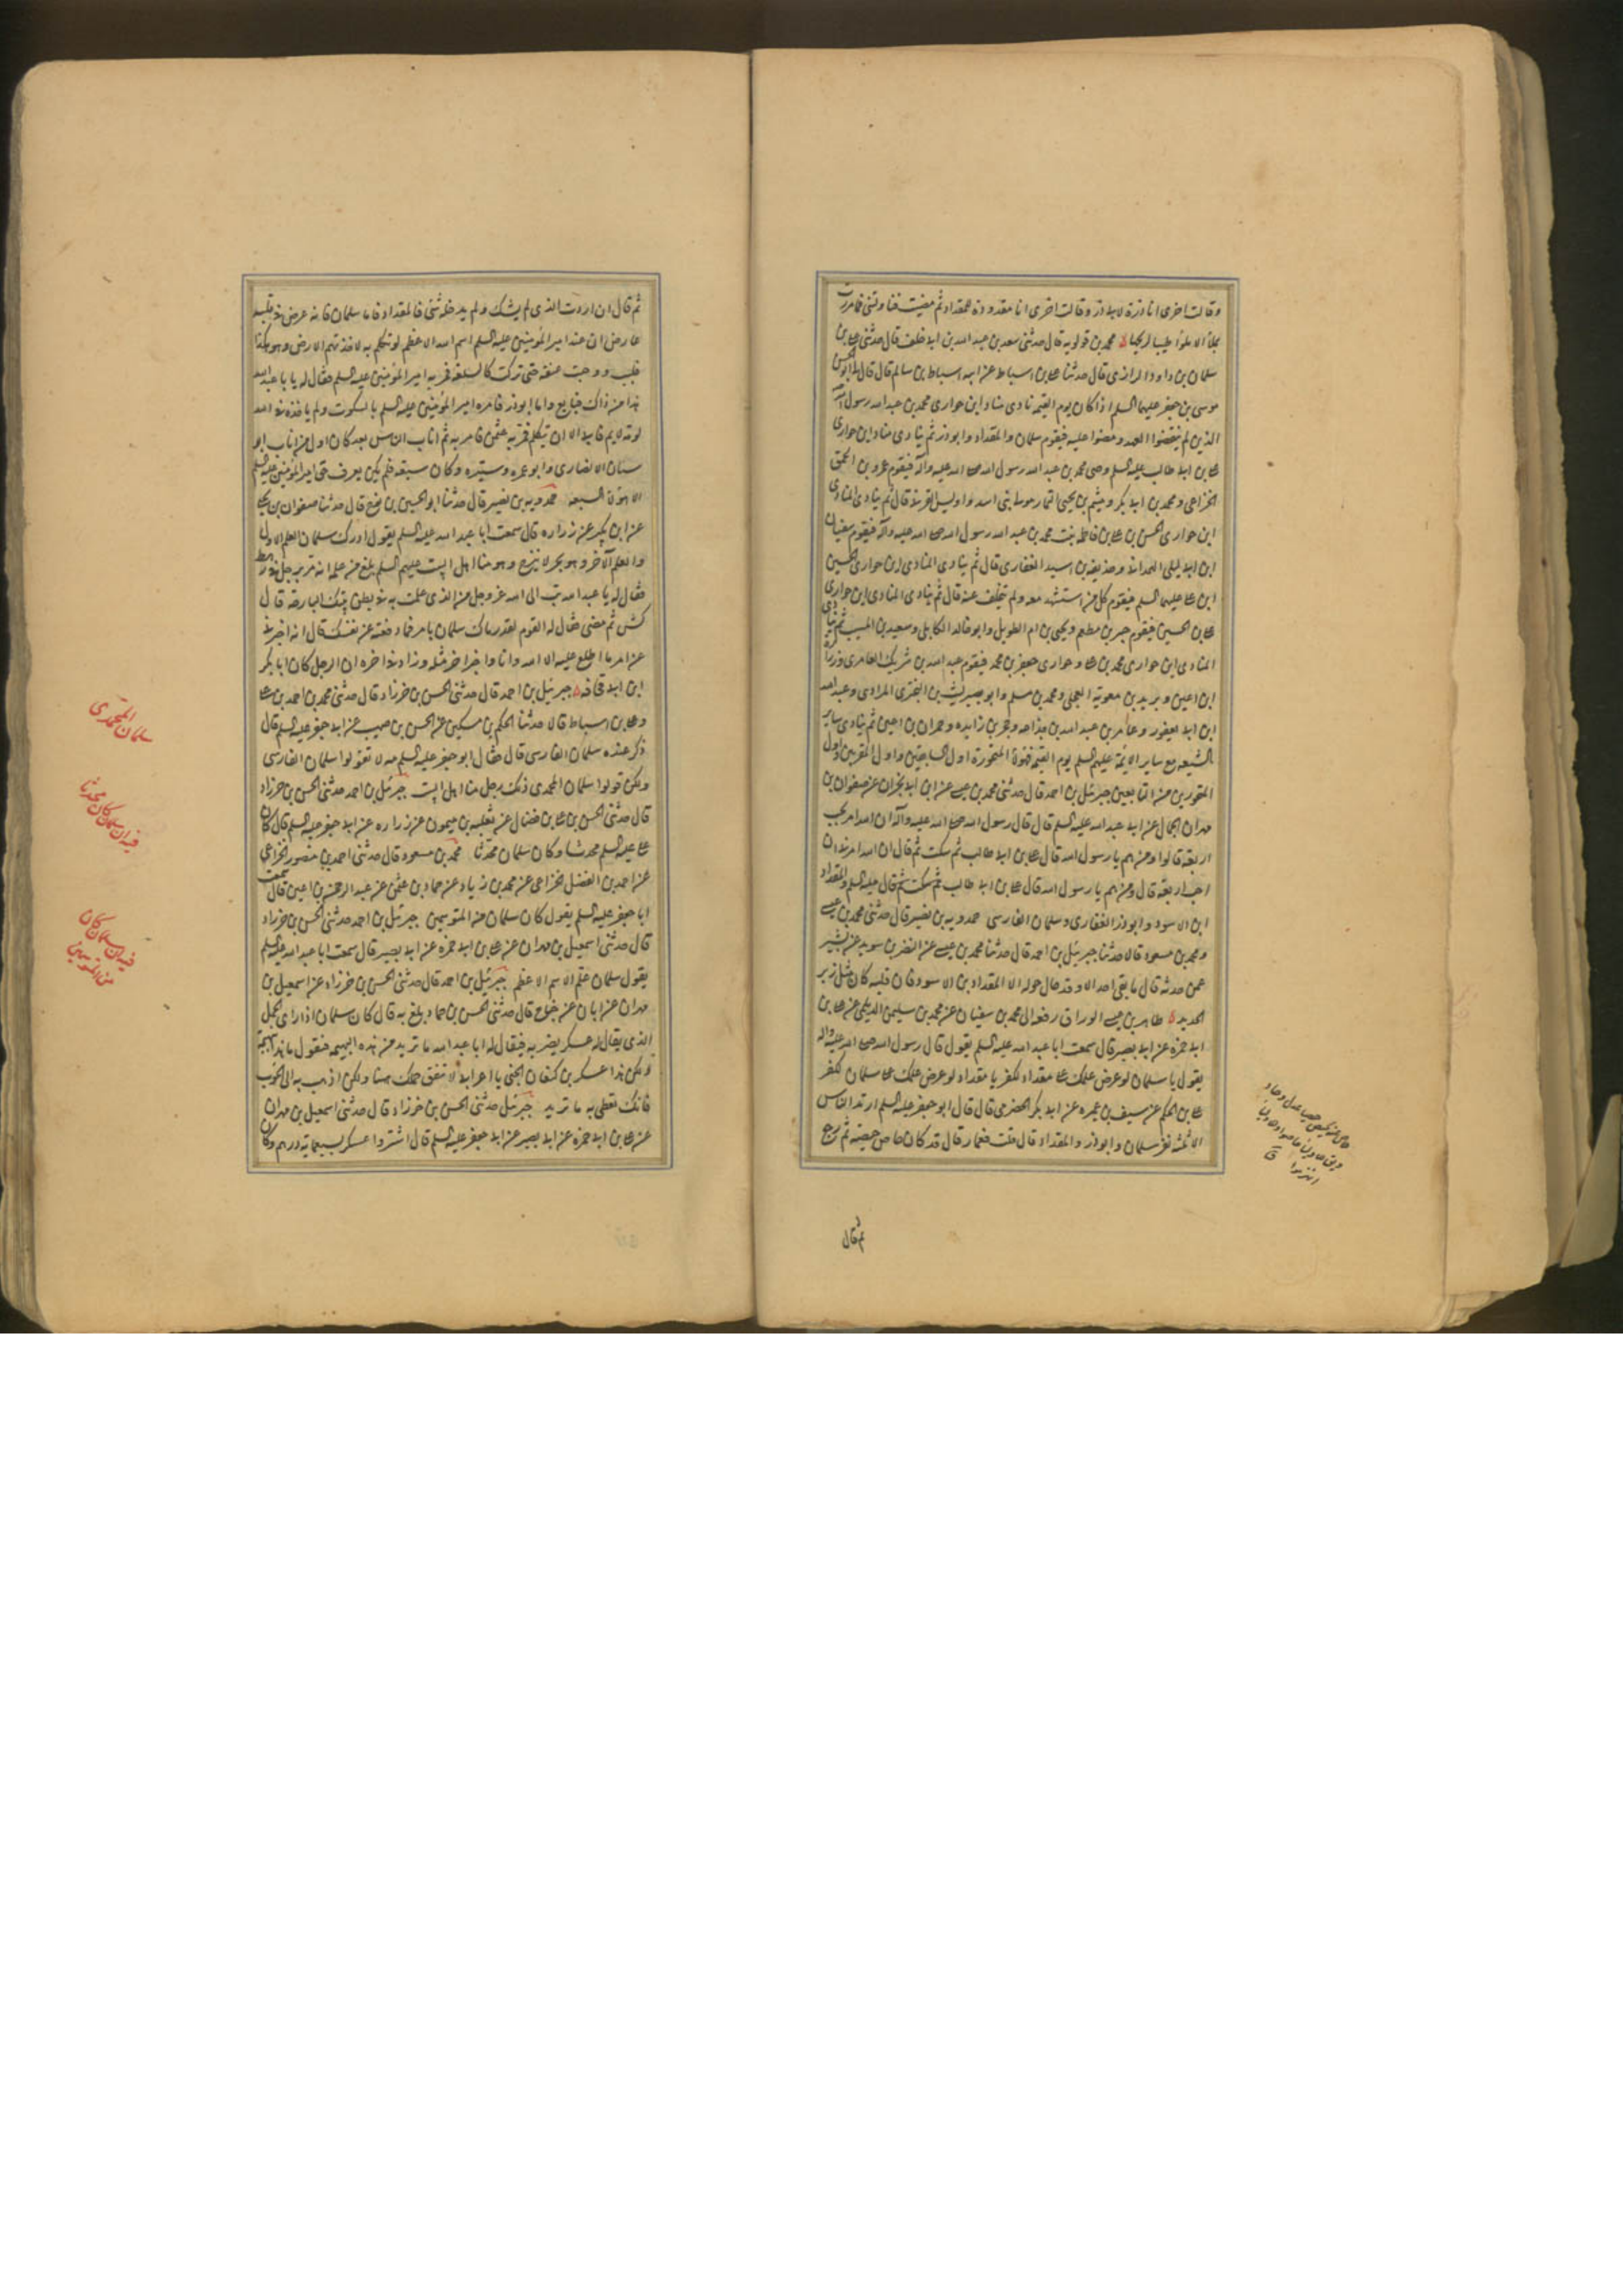 وقالت اخرى انا ذرة لابي ذر وقالت اخرى انا مقدودة للمقداد ثم مضيت فناولتني فما مررت
بملأ الا ملؤا طيبا لريحها محمد بن قولويه قال حدثني سعد بن عبد الله بن ابي خلف قال حدثني علي بن
سلمان بن داود الرازي قال حدثنا علي بن اسباط عن ابيه اسباط بن سالم قال قال ابو الحسن
موسى بن جعفر عليهما السلم اذا كان يوم القيمه نادى مناد اين حواري محمد بن عبد الله رسول الله
الذين لم ينقضوا العهد ومضوا عليه فيقوم سلمان والمقداد وابوذر ثم ينادي مناد اين حواري
علي بن ابي طالب عليه السلم وصي محمد بن عبد الله رسول الله صلى الله عليه وآله فيقوم عمرو بن الحمق
الخزاعي ومحمد بن ابي بكر وميثم بن يحيى التمار مولى بني اسد واويس القرني قال ثم ينادي المنادي
اين حواري الحسن بن علي بن فاطمة بنت محمد بن عبد الله رسول الله صلى الله عليه وآله فيقوم سفيان
ابن ابي ليلى الهمداني وحذيفه بن اسيد الغفاري قال ثم ينادي المنادي اين حواري الحسين
ابن علي عليهما السلم فيقوم كل من استشهد معه ولم يتخلف عنه قال ثم ينادي المنادي اين حواري
علي بن الحسين فيقوم جبير بن مطعم ويحيى بن ام الطويل وابو خالد الكابلي وسعيد بن المسيب ثم ينادي
المنادي اين حواري محمد بن علي وحواري جعفر بن محمد فيقوم عبد الله بن شريك العامري وزرارة
ابن اعين وبريد بن معويه العجلي ومحمد بن مسلم وابو بصير ليث بن البختري المرادي وعبد الله
ابن ابي يعفور وعامر بن عبد الله بن جذاعه وحجر بن زايده وحمران بن اعين ثم ينادي ساير
الشيعه مع ساير الائمة عليهم السلم يوم القيمه فهؤلاء المتحورة اول السابقين واول المقربين واول
المتحورين من التابعين جبرئيل بن احمد قال حدثني محمد بن عيسى عن ابن ابي نجران عن صفوان بن
مهران الجمال عن ابي عبد الله عليه السلم قال قال رسول الله صلى الله عليه وآله ان الله امرني بحب
اربعة قالوا ومن هم يا رسول الله قال علي بن ابي طالب ثم سكت ثم قال ان الله امرني ان
احب اربعة قال ومن هم يا رسول الله قال علي بن ابي طالب ثم سكت ثم قال عليه السلم والمقداد
ابن الاسود وابوذر الغفاري وسلمان الفارسي حمدويه بن نصير قال حدثني محمد بن عيسى
ومحمد بن مسعود قالا حدثنا جبرئيل بن احمد قال حدثنا محمد بن عيسى عن النضر بن سويد عن بشير
عمن حدثه قال ما بقي احد الا وقد جال جولة الا المقداد بن الاسود فان قلبه كان مثل زبر
الحديد طاهر بن عيسى الوراق رفعه الى محمد بن سفيان عن محمد بن سليمن الديلمي عن علي بن
ابي حمزه عن ابي بصير قال سمعت ابا عبد الله عليه السلم يقول قال رسول الله صلى الله عليه وآله
يقول يا سلمان لو عرض علمك على مقداد لكفر يا مقداد لو عرض علمك على سلمان لكفر
علي بن الحكم عن سيف بن عميره عن ابي بكر الحضرمي قال قال ابو جعفر عليه السلم ارتد الناس
الا ثلثه نفر سلمان وابوذر والمقداد قال قلت فعمار قال قد كان حاص حيصه ثم رجع
ثم قال
ثم قال ان اردت الذي لم يشك ولم يدخله شيء فالمقداد فاما سلمان فانه عرض في قلبه
عارض ان عند امير المؤمنين عليه السلم اسم الله الاعظم لو تكلم به لاخذتهم الارض وهو هكذا
فلبب ووجئت عنقه حتى تركت كالسلعه فمر به امير المؤمنين عليه السلم فقال له يا با عبد الله
هذا من ذاك فبايع واما ابوذر فامره امير المؤمنين عليه السلم بالسكوت ولم ياخذه في الله
لومة لايم فابى الا ان يتكلم فمر به عثمن فامر به ثم اناب الناس بعد كان اول من اناب ابو
سنان الانصاري وابو عمره وشتيره وكان سبعه فلم يكن يعرف حق امير المؤمنين عليه السلم
الا هؤلاء السبعه حمدويه بن نصير قال حدثنا ابو الحسين بن نوح قال حدثنا صفوان بن يحيى
عن ابن بكير عن زراره قال سمعت ابا عبد الله عليه السلم يقول ادرك سلمان العلم الاول
والعلم الآخر وهو بحر لا ينزح وهو منا اهل البيت عليهم السلم بلغ من علمه انه مر برجل في رهط
فقال له يا عبد الله تب الى الله عز وجل من الذي عملت به في بطن بيتك البارحه قال
ثم مضى فقال له القوم لقد رماك سلمان بامر فما دفعته عن نفسك قال انه اخبرني
عن امر ما اطلع عليه الا الله وانا وفي خبر اخر مثله وزاد في اخره ان الرجل كان ابا بكر
ابن ابي قحافه جبرئيل بن احمد قال حدثني الحسن بن خرزاد قال حدثني محمد بن احمد بن علي
وعلي بن اسباط قالا حدثنا الحكم بن مسكين عن الحسن بن صهيب عن ابي جعفر عليه السلم قال
ذكر عنده سلمان الفارسي قال فقال ابو جعفر عليه السلم مه لا تقولوا سلمان الفارسي
ولكن قولوا سلمان المحمدي ذلك رجل منا اهل البيت جبرئيل بن احمد حدثني الحسن بن خرزاد
قال حدثني الحسن بن علي بن فضال عن ثعلبه بن ميمون عن زراره عن ابي جعفر عليه السلم قال كان
علي عليه السلم محدثا وكان سلمان محدثا محمد بن مسعود قال حدثني احمد بن منصور الخزاعي
عن احمد بن الفضل الخزاعي عن محمد بن زياد عن حماد بن عثمن عن عبد الرحمن بن اعين قال سمعت
ابا جعفر عليه السلم يقول كان سلمان من المتوسمين جبرئيل بن احمد حدثني الحسن بن خرزاد
قال حدثني اسمعيل بن مهران عن علي بن ابي حمزه عن ابي بصير قال سمعت ابا عبد الله عليه السلم
يقول سلمان علم الاسم الاعظم جبرئيل بن احمد قال حدثني الحسن بن خرزاد عن اسمعيل بن
مهران عن ابان عن جناح قال حدثني الحسن بن حماد بلغ به قال كان سلمان اذا راى الجمل
الذي يقال له عسكر يضربه فيقال له ابا عبد الله ما تريد من هذه البهيمه فيقول ما هذا بهيمة
ولكن هذا عسكر بن كنعان الجني يا اعرابي لا تنفق جملك هنا ولكن اذهب به الى الحوب
فانك تعطى به ما تريد جبرئيل حدثني الحسن بن خرزاد قال حدثني اسمعيل بن مهران
عن علي بن ابي حمزه عن ابي بصير عن ابي جعفر عليه السلم قال اشتروا عسكر بسبعمايه درهم وكان
سلمان المحمدي
فيه ان سلمان كان محدثا
فيه ان سلمان كان
من المتوسمين